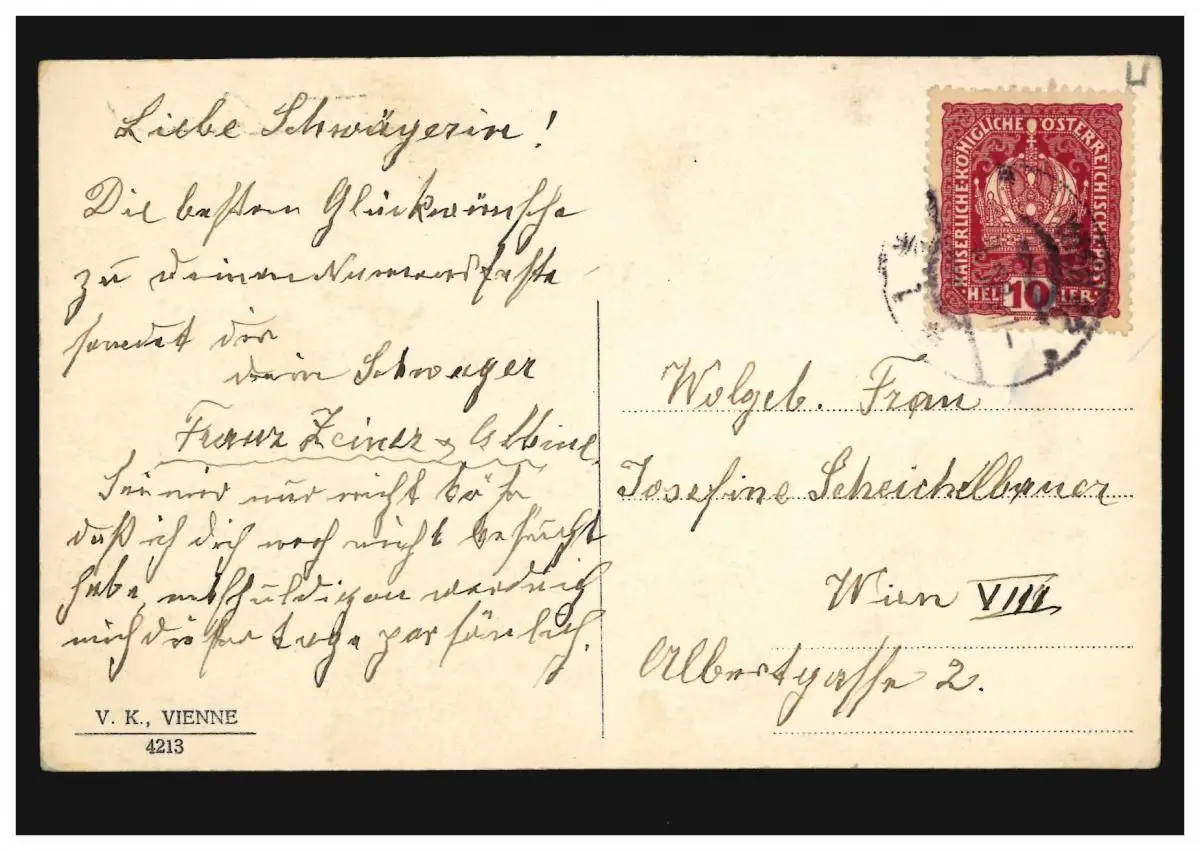 Liebe Schwägerin!
Die besten Glückwünsche
zu deinen Namensfeste
sendet dir
dein Schwager
Franz Zeiner & Albine
Sei mir nur nicht böse
daß ich dich noch nicht besucht
habe, entschuldigen werde ich
mich dieser Tage persönlich.
V. K., VIENNE
4213
KAISERLICHE·KÖNIGLICHE ÖSTERREICHISCHE·POST
HELLER 10 HELLER
Wolgeb. Frau
Josefine Scheichelbauer
Wien VIII
Albertgasse 2.